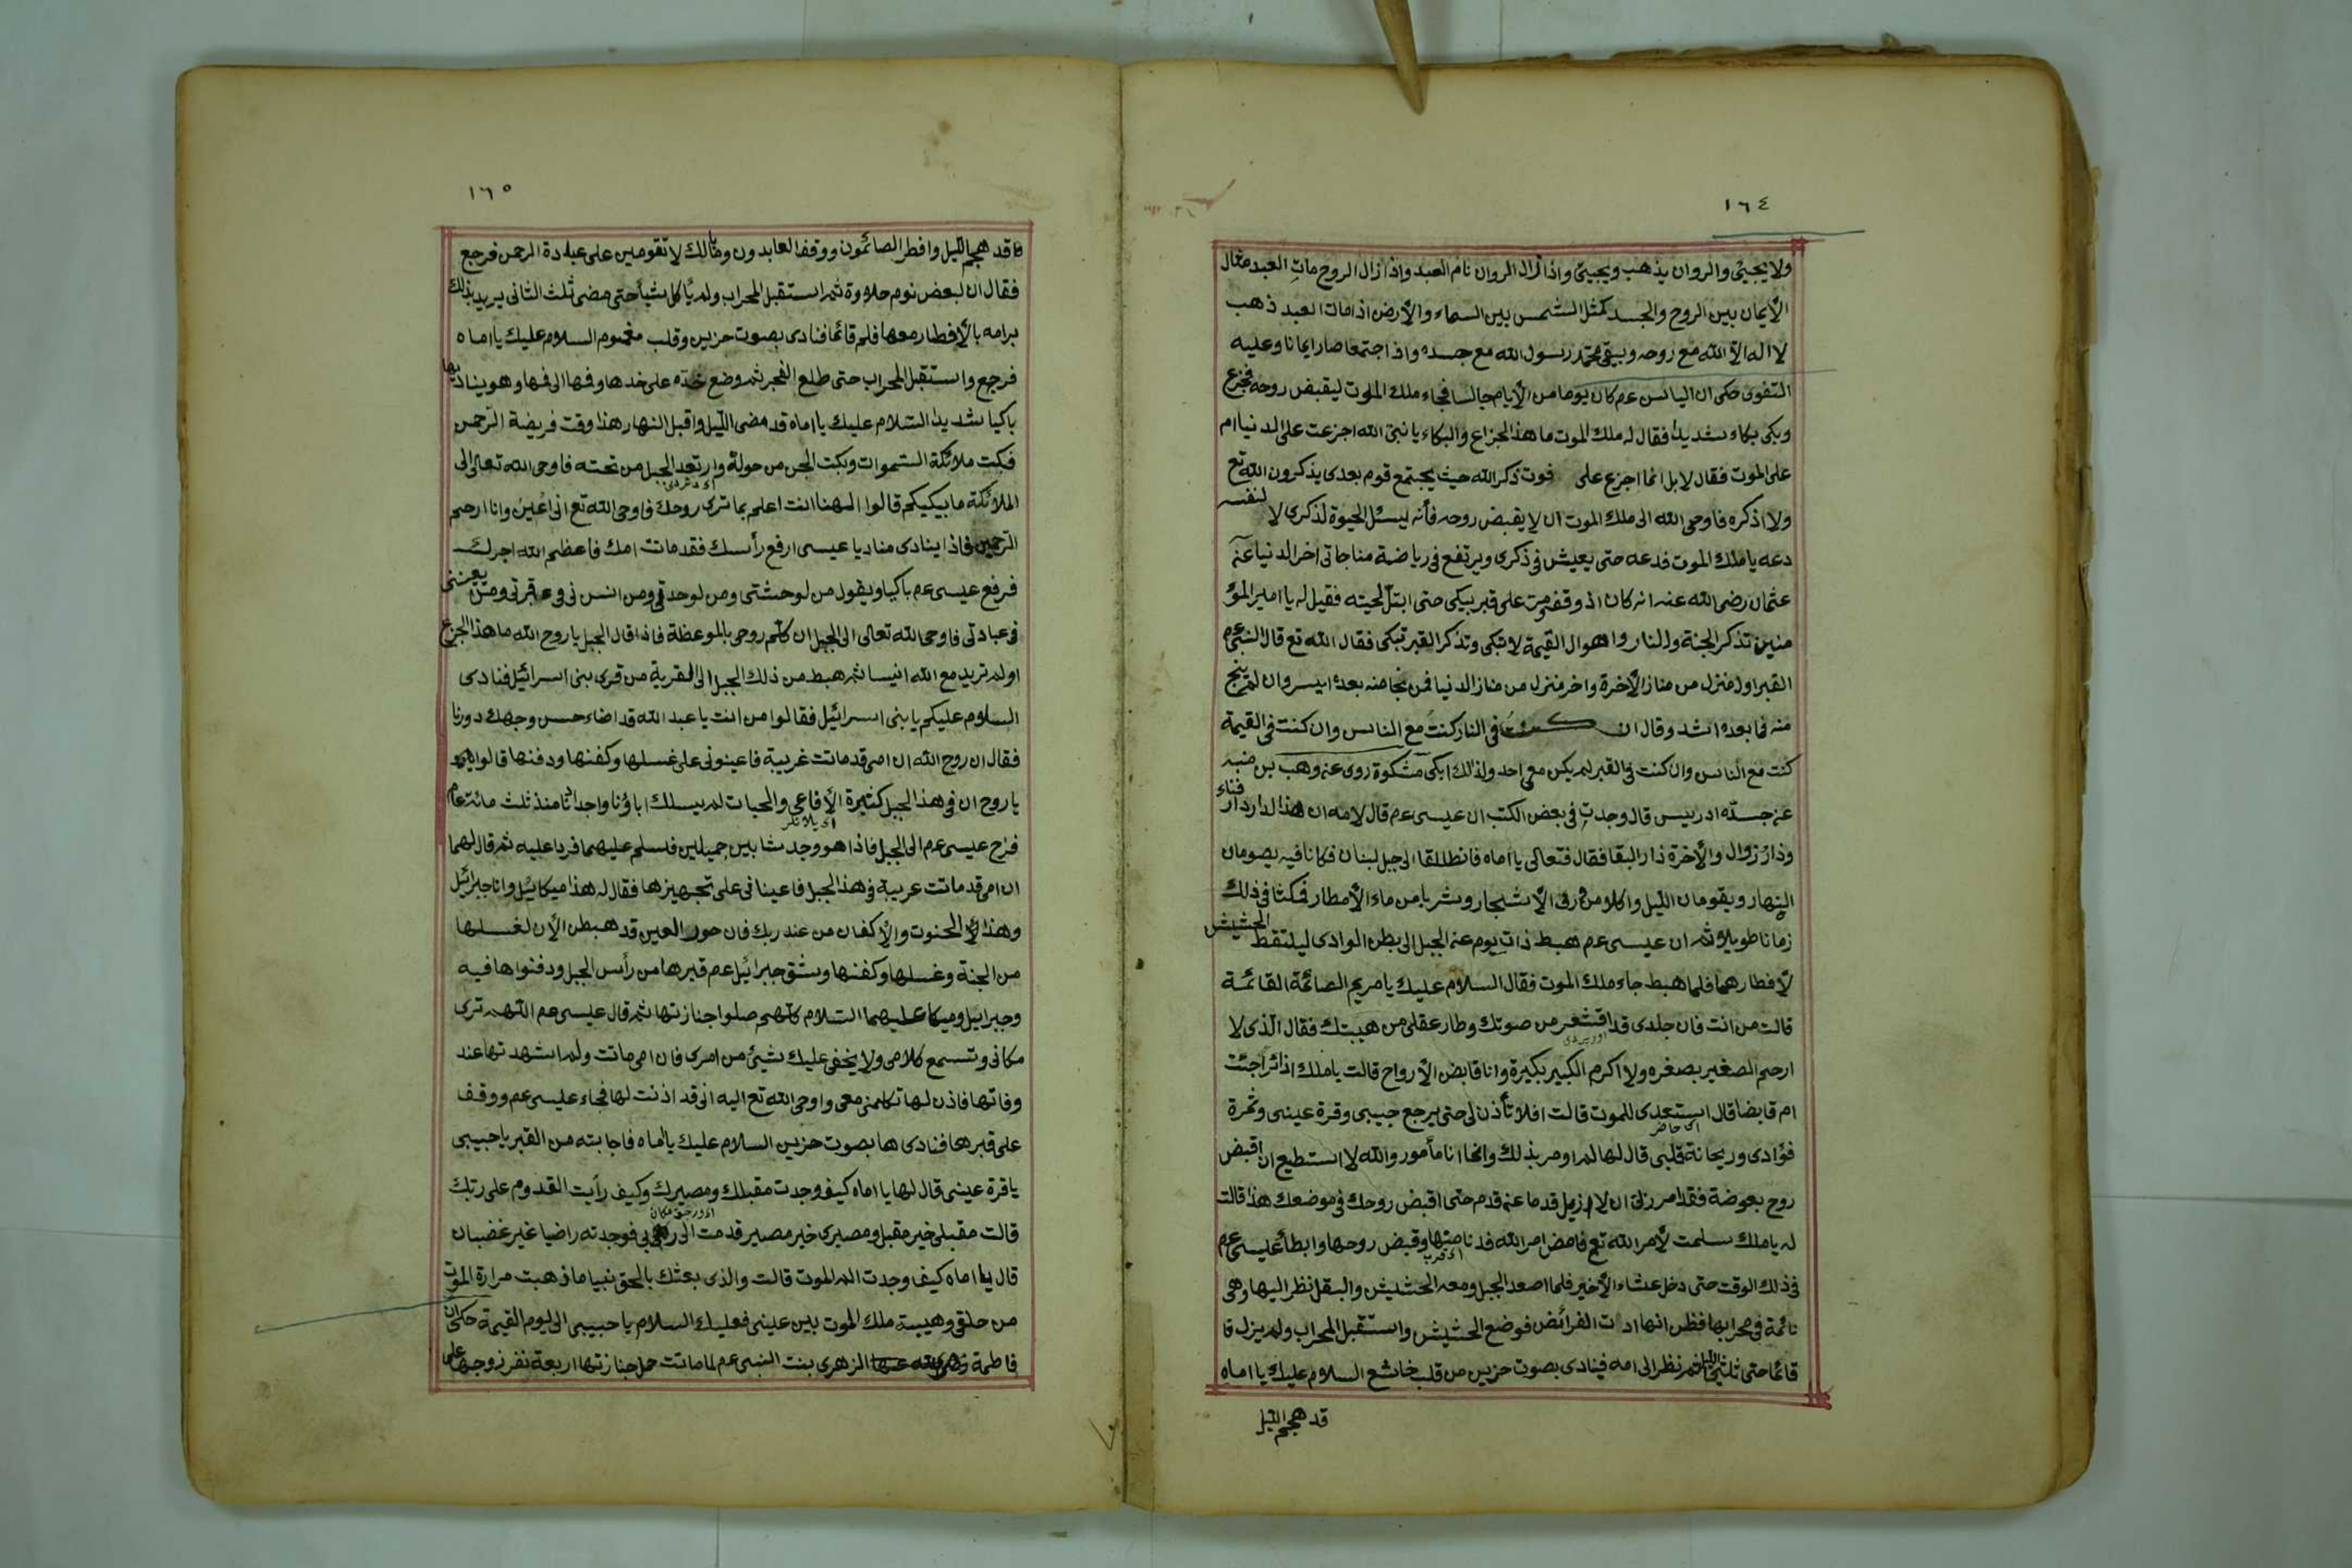 ١٦٤
ولا يجيئ والروان يذهب ويجيئ واذا زال الروان نام العبد واذا زال الروح مات العبد مثال
الأيمان بين الروح والجسد كمثل الشمس بين السماء والأرض اذا مات العبد ذهب
لا اله الا الله مع روحه ويبقى محمد رسول الله مع جسده واذا اجتمعا صار ايمانا وعليه
التفوى حكى ان اليالس عم كان يوما من الأيام جالسا فجاء ملك الموت ليقبض روحه فجزع
وبكى بكاء شديدا فقال له ملك الموت ما هذا الجزاع والبكاء يا نبى الله اجزعت على الدنيا ام
على الموت فقال لا بل انما اجزع على فوت ذكر الله حيث يجتمع قوم بعدى يذكرون الله تع
ولا اذكره فاوحى الله الى ملك الموت ان لا يقبض روحه فأنه ليسئل الحيوة لذكرى لا لنفسه
دعه يا ملك الموت فدعه حتى يعيش فى ذكرى ويرتفع فى رياضة مناجاتى اخر الدنيا عن
عثمان رضى الله عنه انه كان اذ وقف على قبر يبكى حتى ابتل لحيته فقيل له يا امير المؤ
منين تذكر الجنة والنار واهوال القيمة لا تبكى وتذكر القبر تبكى فقال الله تع قال النبى عم
القبر اول منزل من مناز الأخرة واخر منزل من مناز الدنيا فمن نجا منه بعده ايسر وان لم ينج
منه فما بعده اشد وقال ان كنت فى النار كنت مع الناس وان كنت فى القيمة
كنت مع الناس وان كنت فى القبر لم يكن معى احد ولذلك ابكى مشكوة روى عن وهب بن منبه
عن جده ادريس قال وجدت فى بعض الكتب ان عيسى عم قال لامه ان هذا الدار دار فناء
وذار زوال والأخرة ذار البقا فقال فتعالى يا اماه فانطلقا الى جبل لبنان فكانا فيه يصومان
النهار ويقومان الليل واكلا من ورق الأشجار وشربا من ماء الأمطار فمكثا فى ذلك
زمانا طويلا ثم ان عيسى عم هبط ذات يوم عن الجبل الى بطن الوادى ليلتقط الحشيش
لأفطارهما فلما هبط جاء ملك الموت فقال السلام عليك يا مريم الصائمة القائمة
قالت من انت فان جلدى قد اقشعر من صوتك وطار عقلى من هيبتك فقال الذى لا
ارحم الصغير بصغره ولا اكرم الكبير بكيرة وانا قابض الأرواح قالت يا ملك اذائرا جئت
ام قابضا قال استعدى للموت قالت افلا تأذن لى حتى يرجع حبيبى وقرة عينى وثمرة
اى حاضر
فؤادى وريحانة قلبى قال لها لم اومر بذلك وانما انا مأمور والله لا استطيع ان اقبض
روح بعوضة فقد امرنى ان لا ازيل قدما عن قدم حتى اقبض روحك فى موضعك هذا قالت
له يا ملك سلمت لأمر الله تع فامض امر الله فدنا منها وقبض روحها وابطأ عيسى عم
اى قرب
فى ذلك الوقت حتى دخل عشاء الأخير فلما اصعد الجبل ومعه الحشيش والبقل نظر اليها وهى
نائمة فى محرابها فظن انها ادت الفرائض فوضع الحشيش واستقبل المحراب ولم يزل قا
قائما حتى ثلث الليل ثم نظر الى امه فينادى بصوت حزين من قلب خاشع السلام عليك يا اماه
قد هجم الليل
١٦٥
قد هجم الليل وافطر الصائمون ووقف العابدون ومالك لا تقومين على عبادة الرحمن فرجع
فقال ان لبعض نوم حلاوة ثم استقبل المحراب ولم يأكل شيأ حتى مضى ثلث الثانى يريد بذلك
برامه بالأفطار معها فلم قائما فنادى بصوت حزين وقلب مغموم السلام عليك يا اماه
فرجع واستقبل المحراب حتى طلع الفجر ثم وضع خده على خدها وفها الى فها وهو يناديها
باكيا شديدا السلام عليك يا اماه قد مضى الليل واقبل النهار هذا وقت فريضة الرحمن
فبكت ملائكة السموات وبكت الجن من حولة وارتعد الجبل من تحته فاوحى الله تعالى الى
الملائكة ما يبكيكم قالوا الهنا انت اعلم بما ترى روحك فاوحى الله تع انى اعين وانا ارحم
الرحمين فاذا ينادى مناد يا عيسى ارفع رأسك فقد ماتت امك فاعظم الله اجرك
فرفع عيسى عم باكيا ويقول من لوحشتى ومن لوحدتى ومن انس نى فى غربتى ومن يعيننى
فى عبادتى فاوحى الله تعالى الى الجبل ان كلم روحى بالموعظة فاذا قال الجبل يا روح الله ما هذا الجزع
اولم تريد مع الله انيسا ثم هبط من ذلك الجبل الى القرية من قرى بنى اسرائيل فنادى
السلام عليكم يا بنى اسرائيل فقالوا من انت يا عبد الله قد اضاء حسن وجهك دورنا
فقال ان روح الله ان امى قد ماتت غريبة فاعينونى على غسلها وكفنها ودفنها قالوا
يا روح ان فى هذا الجبل كثيرة الأفاعى والحيات لم يسلك اباؤنا واجداتا منذ ثلث مائة عام
اى يلانلر
فرح عيسى عم الى الجبل فاذا هو وجد شابين جميلين فسلم عليهما فردا عليه ثم قال لهما
ان امى قد ماتت غريبة فى هذا الجبل فاعينانى على تجهيزها فقال له هذا ميكائيل وانا جبرائيل
وهذا الحنوت والأكفان من عند ربك فان حور العين قد هبطن الأن لغسلها
من الجنة وغسلها وكفنها وشق جبرائيل عم قبرها من رأس الجبل ودفنوا ها فيه
وجبرايل وميكا عليهما السلام كلهم صلوا جنازتها ثم قال عيسى عم اللهم ترى
مكانى وتسمع كلامى ولا يخفى عليك شيئ من امرى فان امى ماتت ولم اشهد تها عند
وفاتها فاذن لها تكلمنى معى واوحى الله تع اليه انى قد اذنت لها فجاء عليسى عم ووقف
على قبرها فنادى ها بصوت حزين السلام عليك يا اماه فاجابته من القبر يا حبيبى
يا قرة عينى قال لها يا اماه كيف وجدت مقبلك ومصيرك وكيف رأيت القدوم على ربك
قالت مقبلى خير مقبل ومصيرى خير مصير قدمت الى ربى فوجدته راضيا غير غضبان
قال يا اماه كيف وجدت الم الموت قالت والذى بعثك بالحق نبيا ما ذهبت مرارة الموت
من حلقى وهيبة ملك الموت بين عينى فعليك السلام يا حبيبى الى يوم القيمة حكى ان
فاطمة الزهرى بنت النبى عم لما ماتت حمل جنازتها اربعة نفر زوجها على